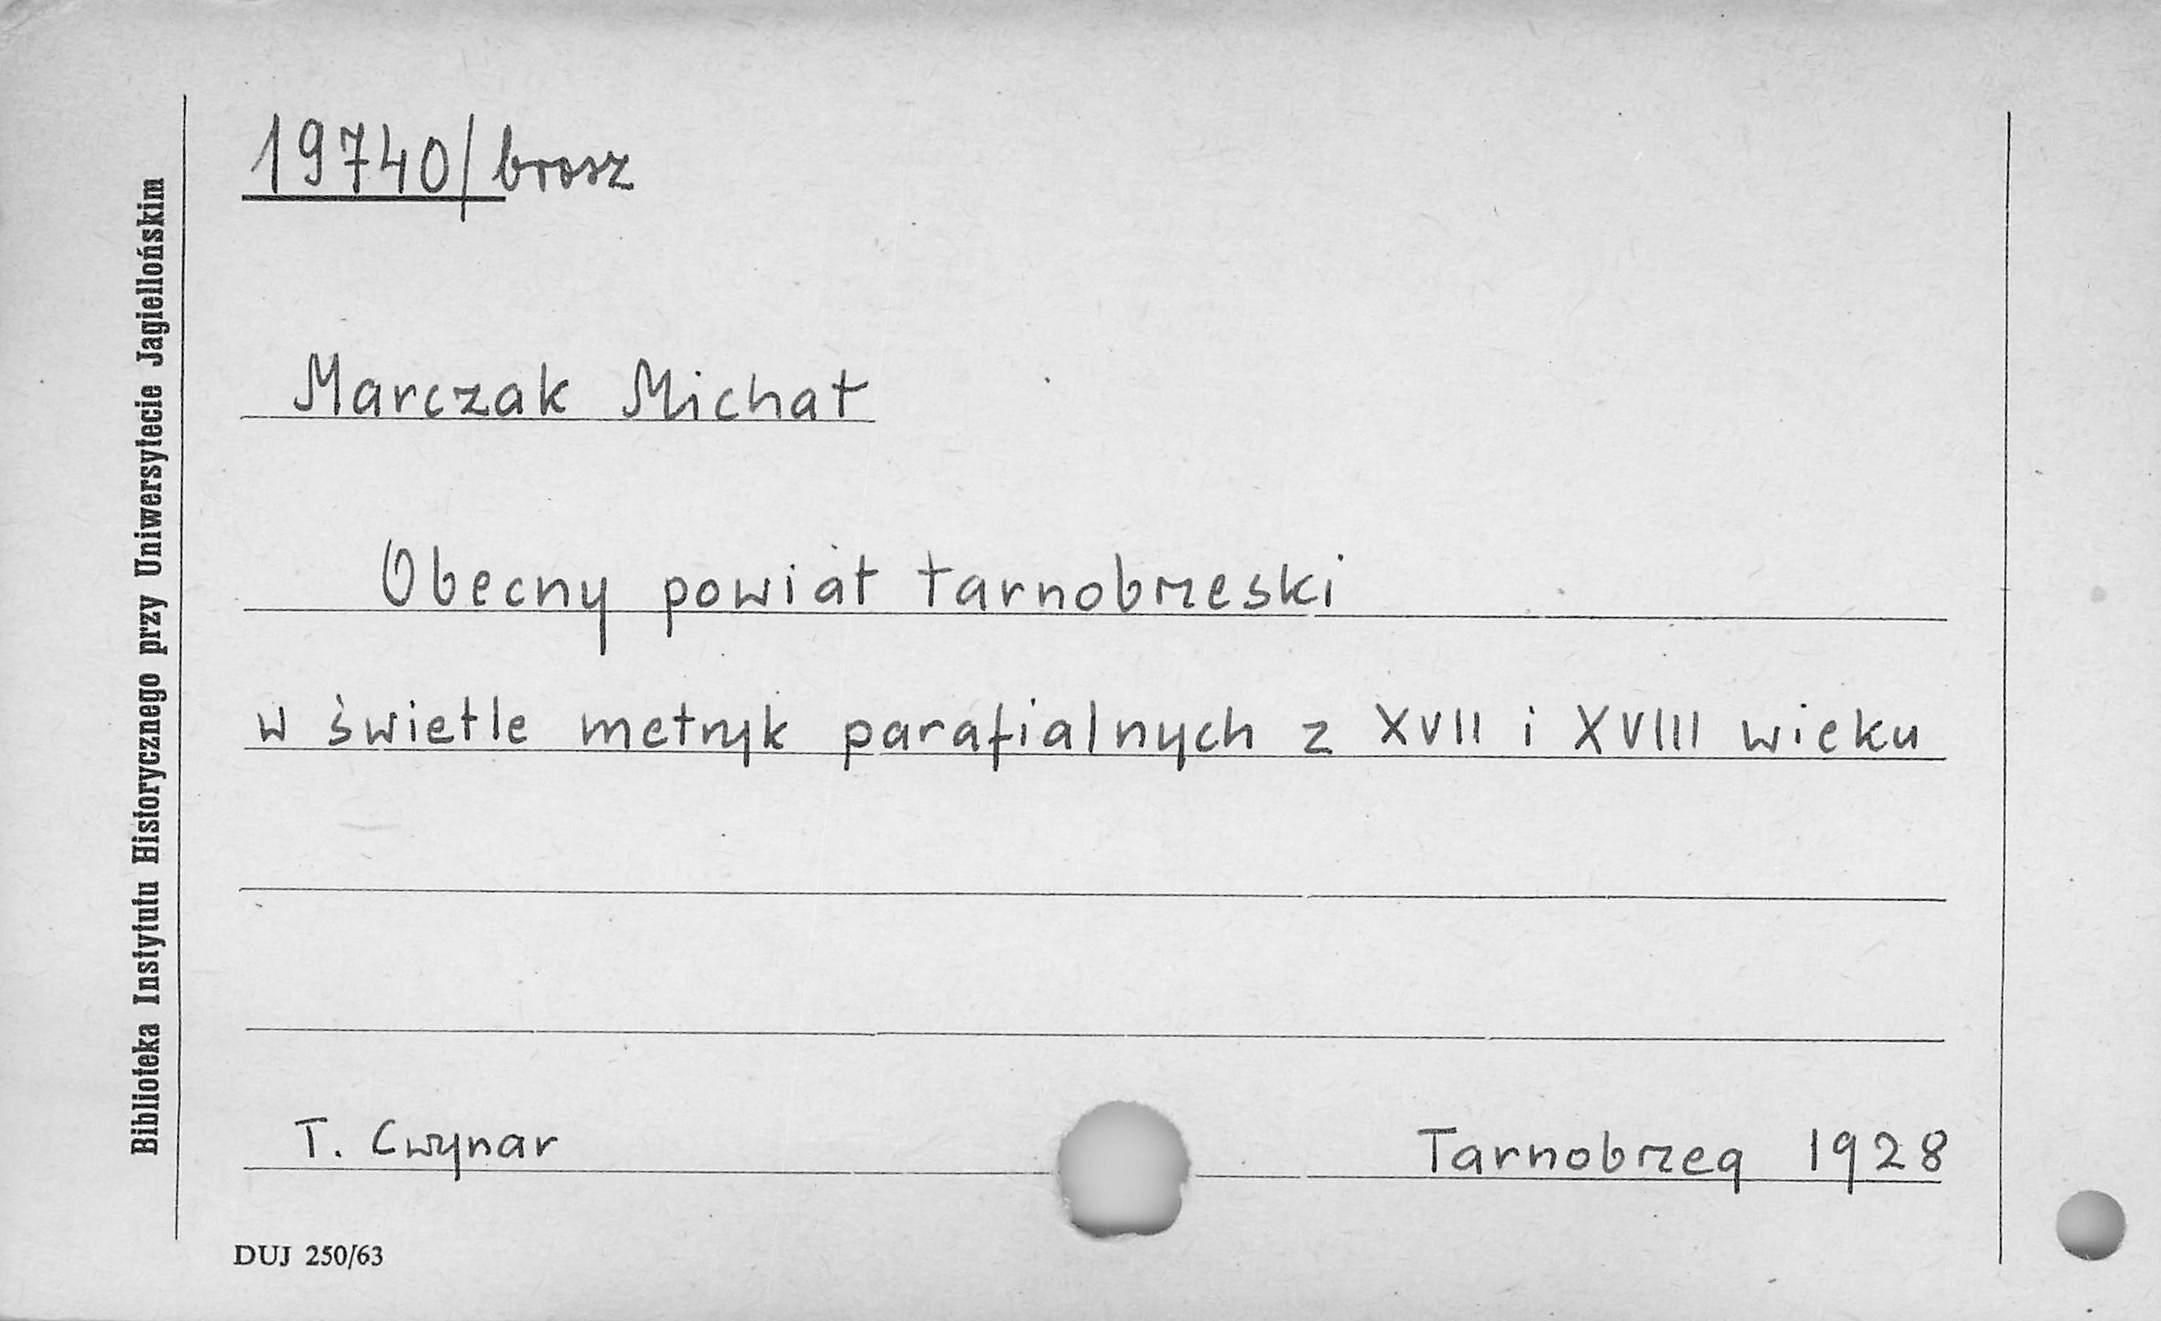 19740/brosz
Marczak Michał
Obecny powiat tarnobrzeski
w świetle metryk parafialnych z XVII i XVIII wieku
T. Cwynar
Tarnobrzeg 1928
DUJ 250/63
Biblioteka Instytutu Historycznego przy Uniwersytecie Jagiellońskim